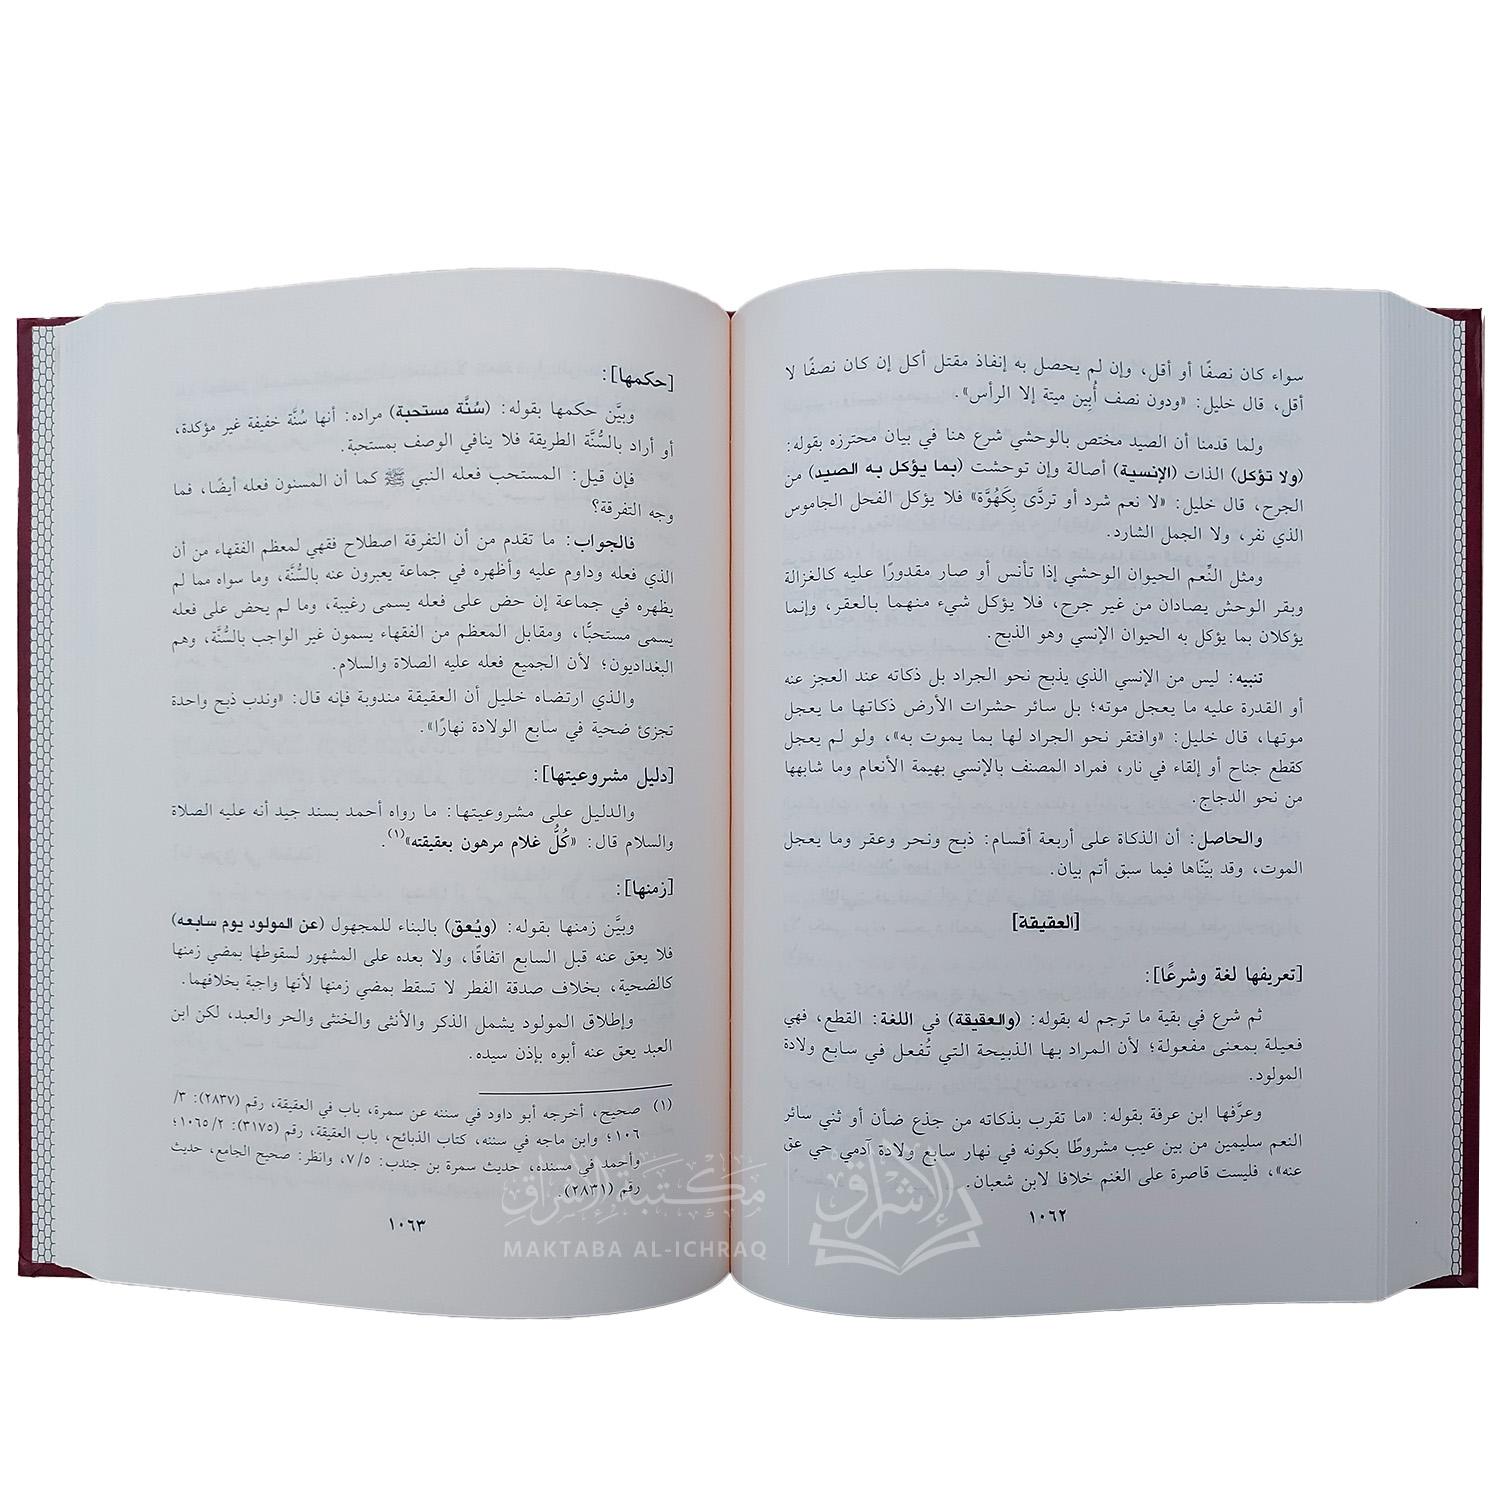 سواء كان نصفًا أو أقل، وإن لم يحصل به إنفاذ مقتل أكل إن كان نصفًا لا
أقل، قال خليل: «ودون نصف أُبِين ميتة إلا الرأس».
ولما قدمنا أن الصيد مختص بالوحشي شرع هنا في بيان محترزه بقوله:
(ولا تؤكل) الذات (الإنسية) أصالة وإن توحشت (بما يؤكل به الصيد) من
الجرح، قال خليل: «لا نعم شرد أو تردَّى بِكَهُوَّة» فلا يؤكل الفحل الجاموس
الذي نفر، ولا الجمل الشارد.
ومثل النِّعم الحيوان الوحشي إذا تأنس أو صار مقدورًا عليه كالغزالة
وبقر الوحش يصادان من غير جرح، فلا يؤكل شيء منهما بالعقر، وإنما
يؤكلان بما يؤكل به الحيوان الإنسي وهو الذبح.
تنبيه: ليس من الإنسي الذي يذبح نحو الجراد بل ذكاته عند العجز عنه
أو القدرة عليه ما يعجل موته؛ بل سائر حشرات الأرض ذكاتها ما يعجل
موتها، قال خليل: «وافتقر نحو الجراد لها بما يموت به»، ولو لم يعجل
كقطع جناح أو إلقاء في نار، فمراد المصنف بالإنسي بهيمة الأنعام وما شابهها
من نحو الدجاج.
والحاصل: أن الذكاة على أربعة أقسام: ذبح ونحر وعقر وما يعجل
الموت، وقد بيّنّاها فيما سبق أتم بيان.
[العقيقة]
[تعريفها لغة وشرعًا]:
ثم شرع في بقية ما ترجم له بقوله: (والعقيقة) في اللغة: القطع، فهي
فعيلة بمعنى مفعولة؛ لأن المراد بها الذبيحة التي تُفعل في سابع ولادة
المولود.
وعرَّفها ابن عرفة بقوله: «ما تقرب بذكاته من جذع ضأن أو ثني سائر
النعم سليمين من بين عيب مشروطًا بكونه في نهار سابع ولادة آدمي حي عق
عنه»، فليست قاصرة على الغنم خلافا لابن شعبان.
١٠٦٢
[حكمها]:
وبيَّن حكمها بقوله: (سُنَّة مستحبة) مراده: أنها سُنَّة خفيفة غير مؤكدة،
أو أراد بالسُّنَّة الطريقة فلا ينافي الوصف بمستحبة.
فإن قيل: المستحب فعله النبي ﷺ كما أن المسنون فعله أيضًا، فما
وجه التفرقة؟
فالجواب: ما تقدم من أن التفرقة اصطلاح فقهي لمعظم الفقهاء من أن
الذي فعله وداوم عليه وأظهره في جماعة يعبرون عنه بالسُّنَّة، وما سواه مما لم
يظهره في جماعة إن حض على فعله يسمى رغيبة، وما لم يحض على فعله
يسمى مستحبًّا، ومقابل المعظم من الفقهاء يسمون غير الواجب بالسُّنَّة، وهم
البغداديون؛ لأن الجميع فعله عليه الصلاة والسلام.
والذي ارتضاه خليل أن العقيقة مندوبة فإنه قال: «وندب ذبح واحدة
تجزئ ضحية في سابع الولادة نهارًا».
[دليل مشروعيتها]:
والدليل على مشروعيتها: ما رواه أحمد بسند جيد أنه عليه الصلاة
والسلام قال: «كُلُّ غلام مرهون بعقيقته»(١).
[زمنها]:
وبيَّن زمنها بقوله: (ويُعق) بالبناء للمجهول (عن المولود يوم سابعه)
فلا يعق عنه قبل السابع اتفاقًا، ولا بعده على المشهور لسقوطها بمضي زمنها
كالضحية، بخلاف صدقة الفطر لا تسقط بمضي زمنها لأنها واجبة بخلافهما.
وإطلاق المولود يشمل الذكر والأنثى والخنثى والحر والعبد، لكن ابن
العبد يعق عنه أبوه بإذن سيده.
(١) صحيح، أخرجه أبو داود في سننه عن سمرة، باب في العقيقة، رقم (٢٨٣٧): ٣/
١٠٦؛ وابن ماجه في سننه، كتاب الذبائح، باب العقيقة، رقم (٣١٧٥): ٢/ ١٠٦٥؛
وأحمد في مسنده، حديث سمرة بن جندب: ٥/ ٧، وانظر: صحيح الجامع، حديث
رقم (٢٨٣١).
١٠٦٣
مكتبة الإشراق
MAKTABA AL-ICHRAQ
الإشراق